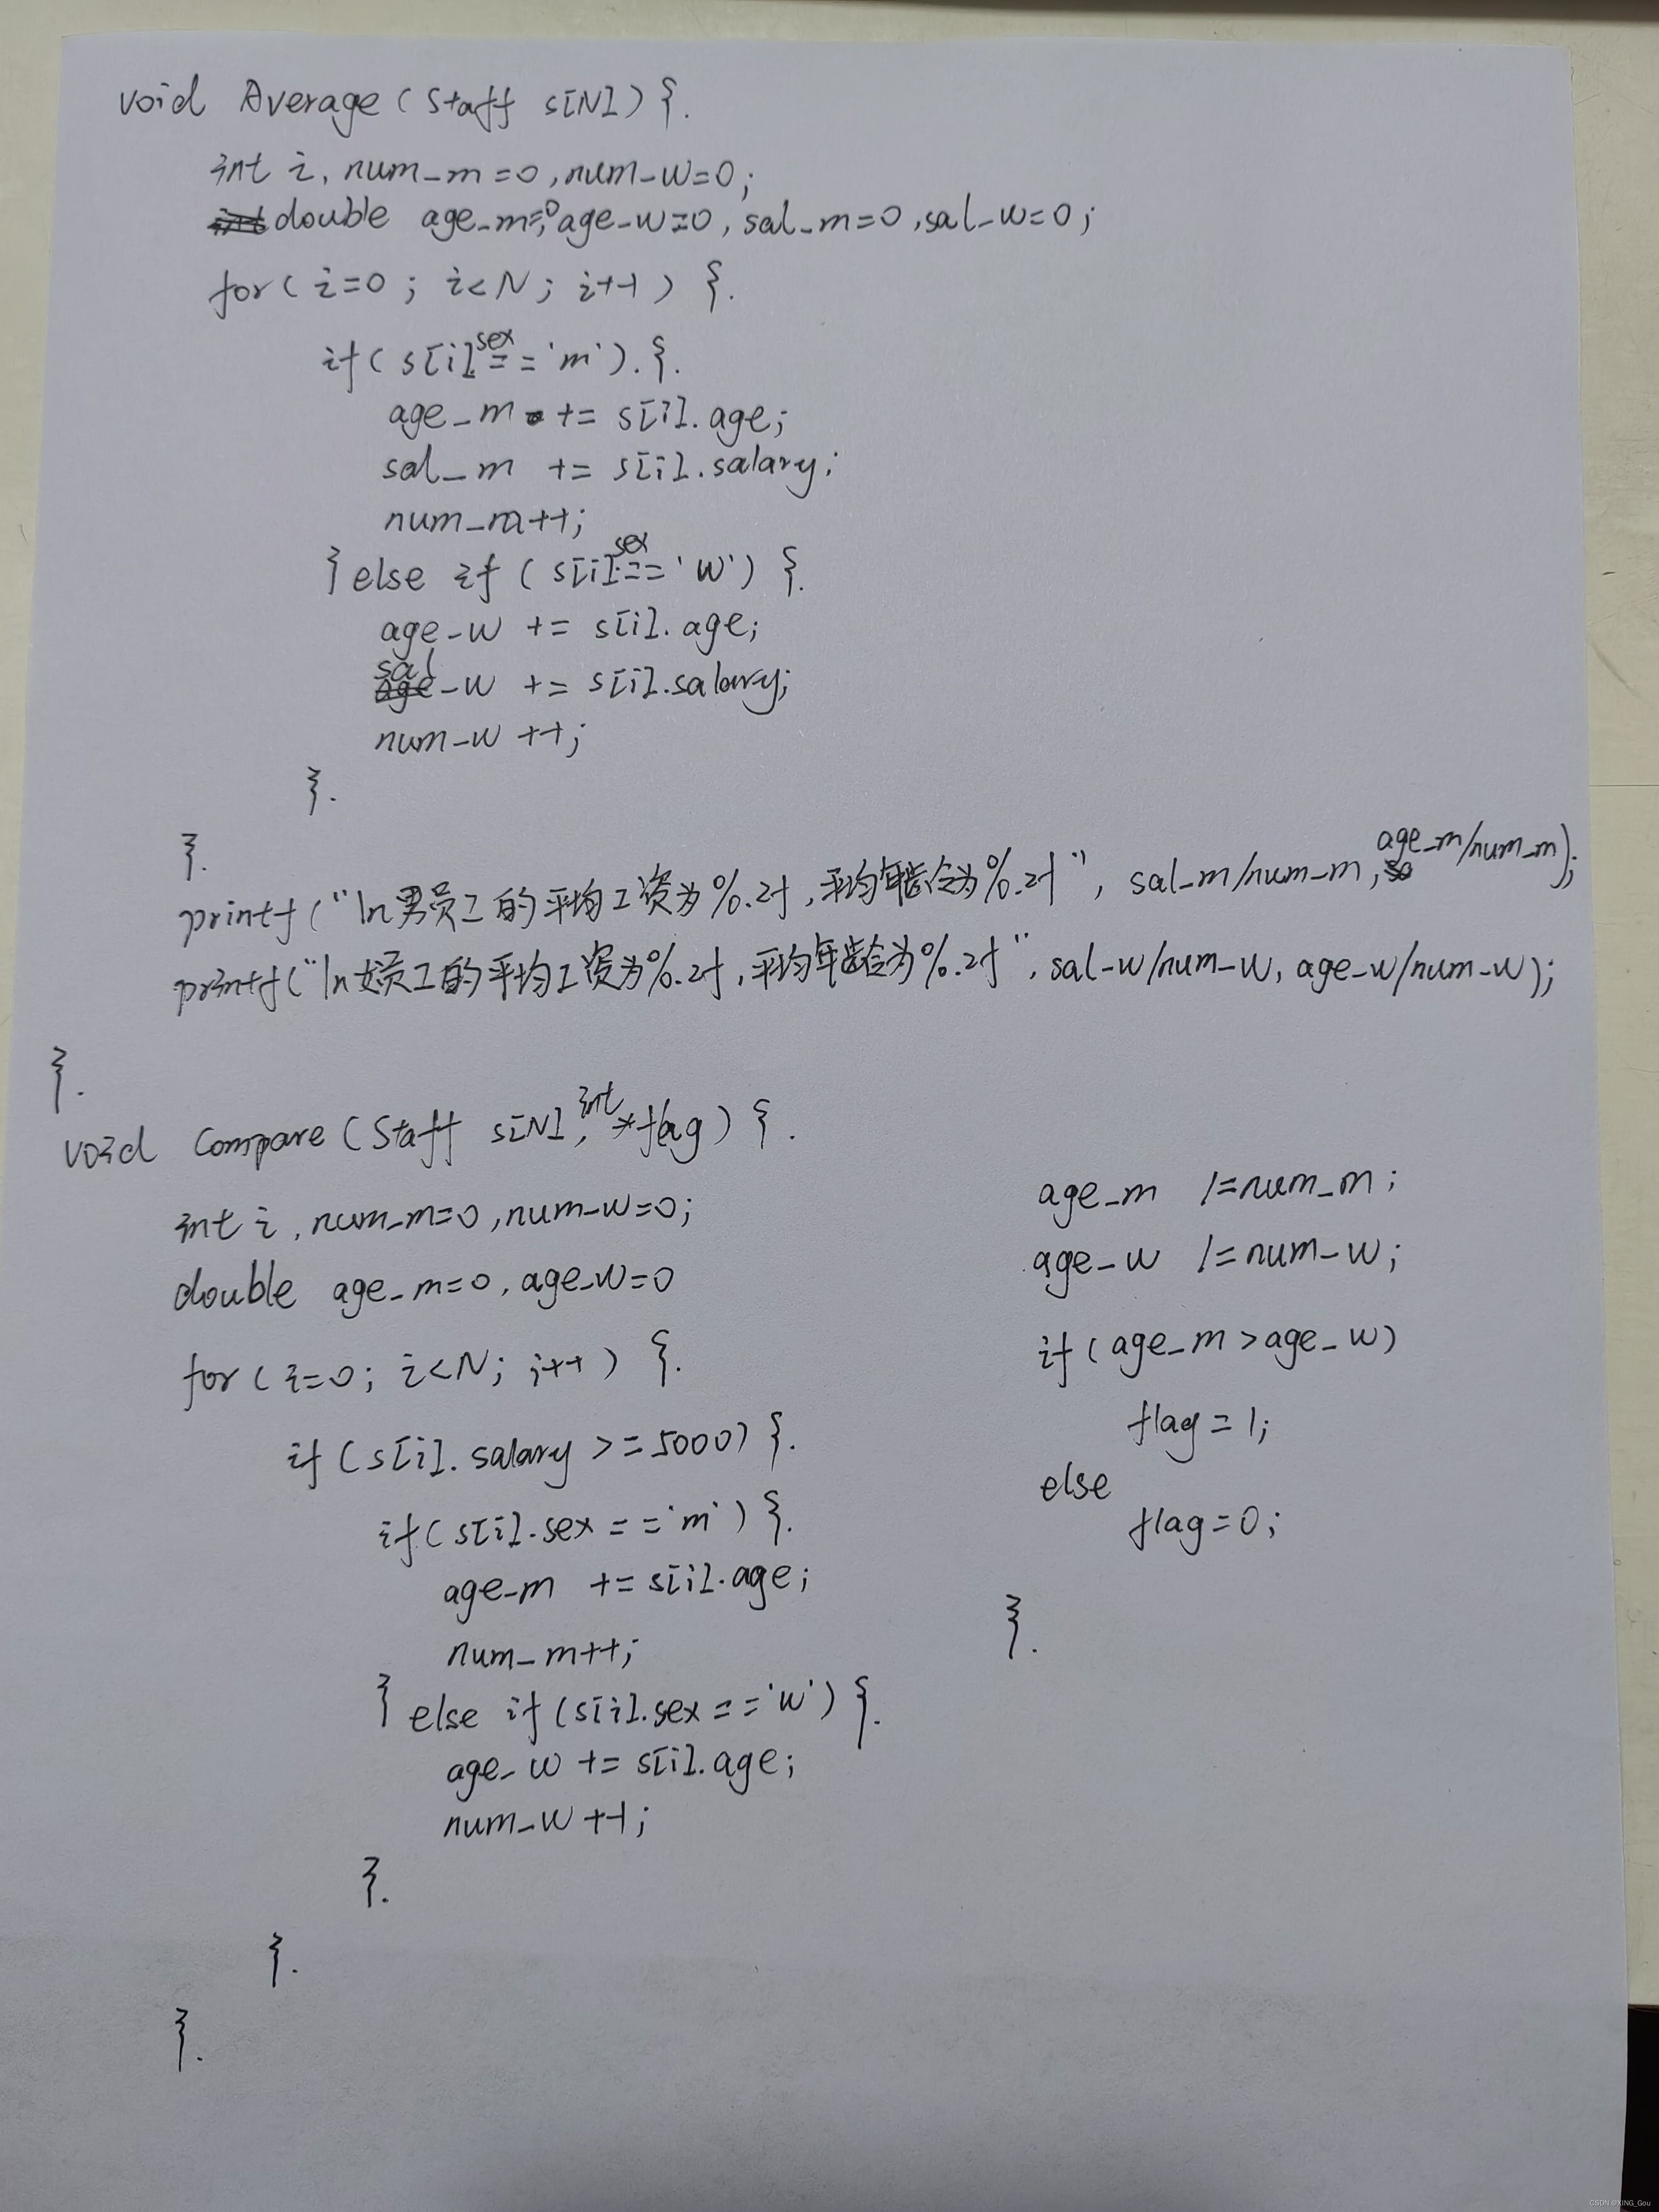 void Average(Staff s[N]){
int i, num_m=0,num_w=0;
double age_m=0,age_w=0,sal_m=0,sal_w=0;
for(i=0;i<N;i++){
if(s[i].sex=='m'){
age_m += s[i].age;
sal_m += s[i].salary;
num_m++;
}else if(s[i].sex=='w'){
age_w += s[i].age;
sal_w += s[i].salary;
num_w++;
}
}
printf("\n男员工的平均工资为%.2f,平均年龄为%.2f", sal_m/num_m,age_m/num_m);
printf("\n女员工的平均工资为%.2f,平均年龄为%.2f",sal_w/num_w,age_w/num_w);
}
void Compare(Staff s[N],int *flag){
int i,num_m=0,num_w=0;
double age_m=0,age_w=0
for(i=0;i<N;i++){
if(s[i].salary>=5000){
if(s[i].sex=='m'){
age_m += s[i].age;
num_m++;
}else if(s[i].sex=='w'){
age_w += s[i].age;
num_w++;
}
}
}
age_m /=num_m;
age_w /=num_w;
if(age_m>age_w)
flag=1;
else
flag=0;
}
CSDN @XING_Gou